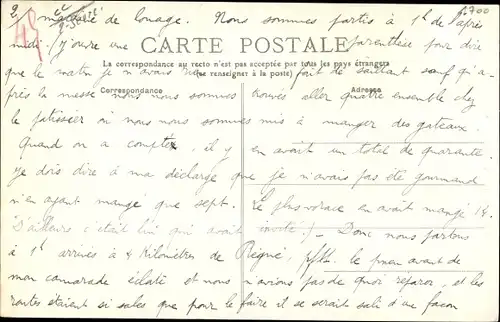 2/ de louage. Nous sommes partis à 1h de l'après
2.700
45
midi. (J'ouvre une parenthèse pour dire
CARTE POSTALE
La correspondance au recto n'est pas acceptée par tous les pays étrangers
(Se renseigner à la poste)
que le matin je n'avais rien fait de saillant sauf qu'a-
Correspondance
Adresse
près la messe nous nous sommes trouvés aller quatre ensemble chez
le patissier où nous nous sommes mis à manger des gateaux.
Quand on a compté, il y en avait un total de quarante.
Je dois dire à ma décharge que je n'avais pas été gourmand
n'en ayant mangé que sept. Le plus vorace en avait mangé 14.
D'ailleurs c'était lui qui avait invité!_ Donc nous partons
à 1h arrivés à 4 Kilomètres de pfft. le pneu avant de
mon camarade éclate et nous n'avions pas de quoi réparer, et les
routes étaient si sales que pour le faire il se serait sali d'une façon